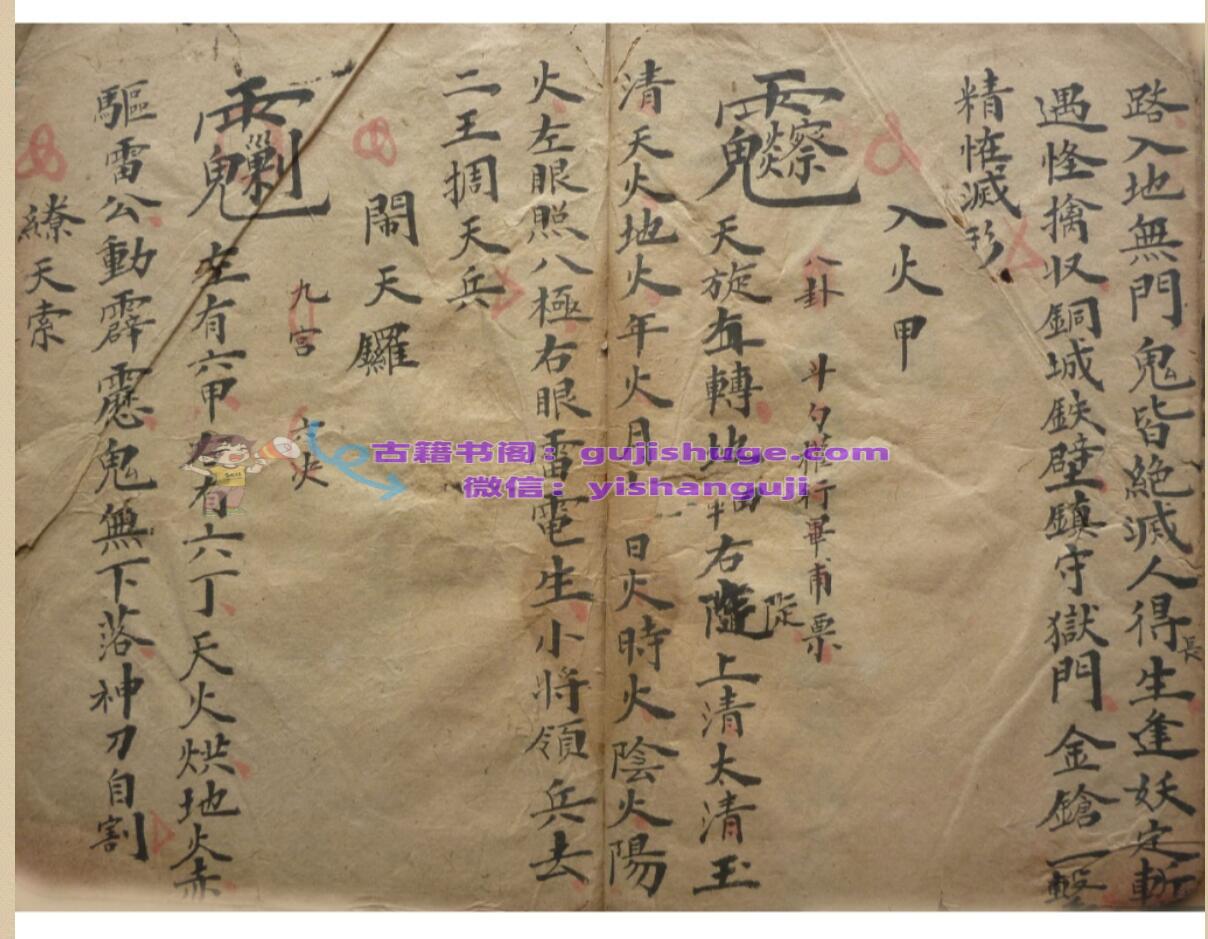 路入地無門鬼皆絕滅人得長生逢妖定斬
遇怪擒収銅城鉄壁鎮守獄門金鎗一擊
精怪滅形
入火甲
八卦
斗夕 行畢甫票
天旋 轉地 右隨 上清太清玉
清天火地火年火月 日火時火陰火陽
火左眼照八極右眼雷電生小將領兵去
二王掆天兵
鬧天鑼
九宮 六央
左有六甲 有六丁天火烘地火赤
驅雷公動霹靂鬼無下落神刀自割
繚天索
古籍书阁：gujishuge.com
微信：yishanguji